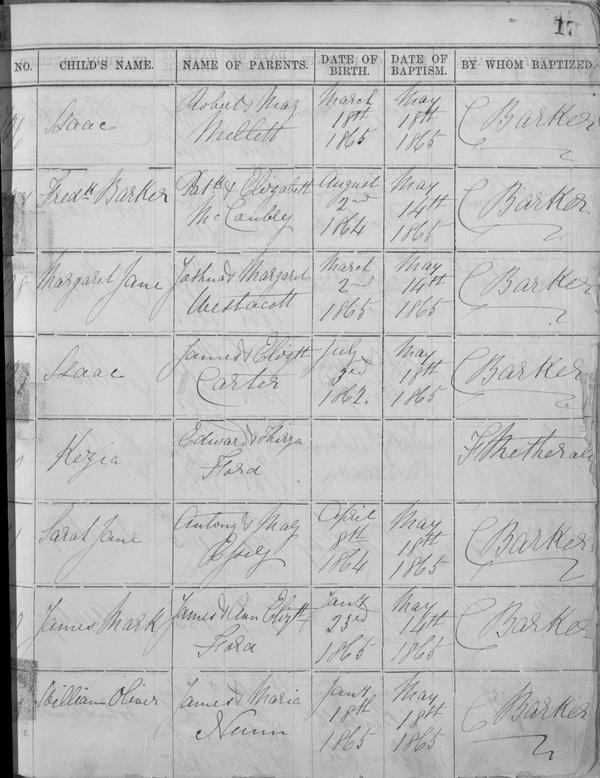 17
NO. CHILD'S NAME. NAME OF PARENTS. DATE OF BIRTH. DATE OF BAPTISM. BY WHOM BAPTIZED.
Isaac
Robert & Mag
Millett
March
18th
1865
May
18th
1865
C Barker
Fredk Barker
Patk & Elizabeth
McCaubley
August
2nd
1864
May
14th
1865
C Barker
Margaret Jane
Joshua & Margaret
Westacott
March
2nd
1865
May
14th
1865
C Barker
Isaac
James & Elizth
Carter
July
3rd
1862.
May
18th
1865
C Barker
Kezia
Edward & Thirza
Flora
Sarah Jane
Antony & Mag
April
8th
1864
May
18th
1865
C Barker
James Mark
James & Ann Elizth
Flora
Jany
23rd
1865
May
14th
1865
C Barker
William Oliver
James & Maria
Nunn
Jany
18th
1865
May
18th
1865
C Barker